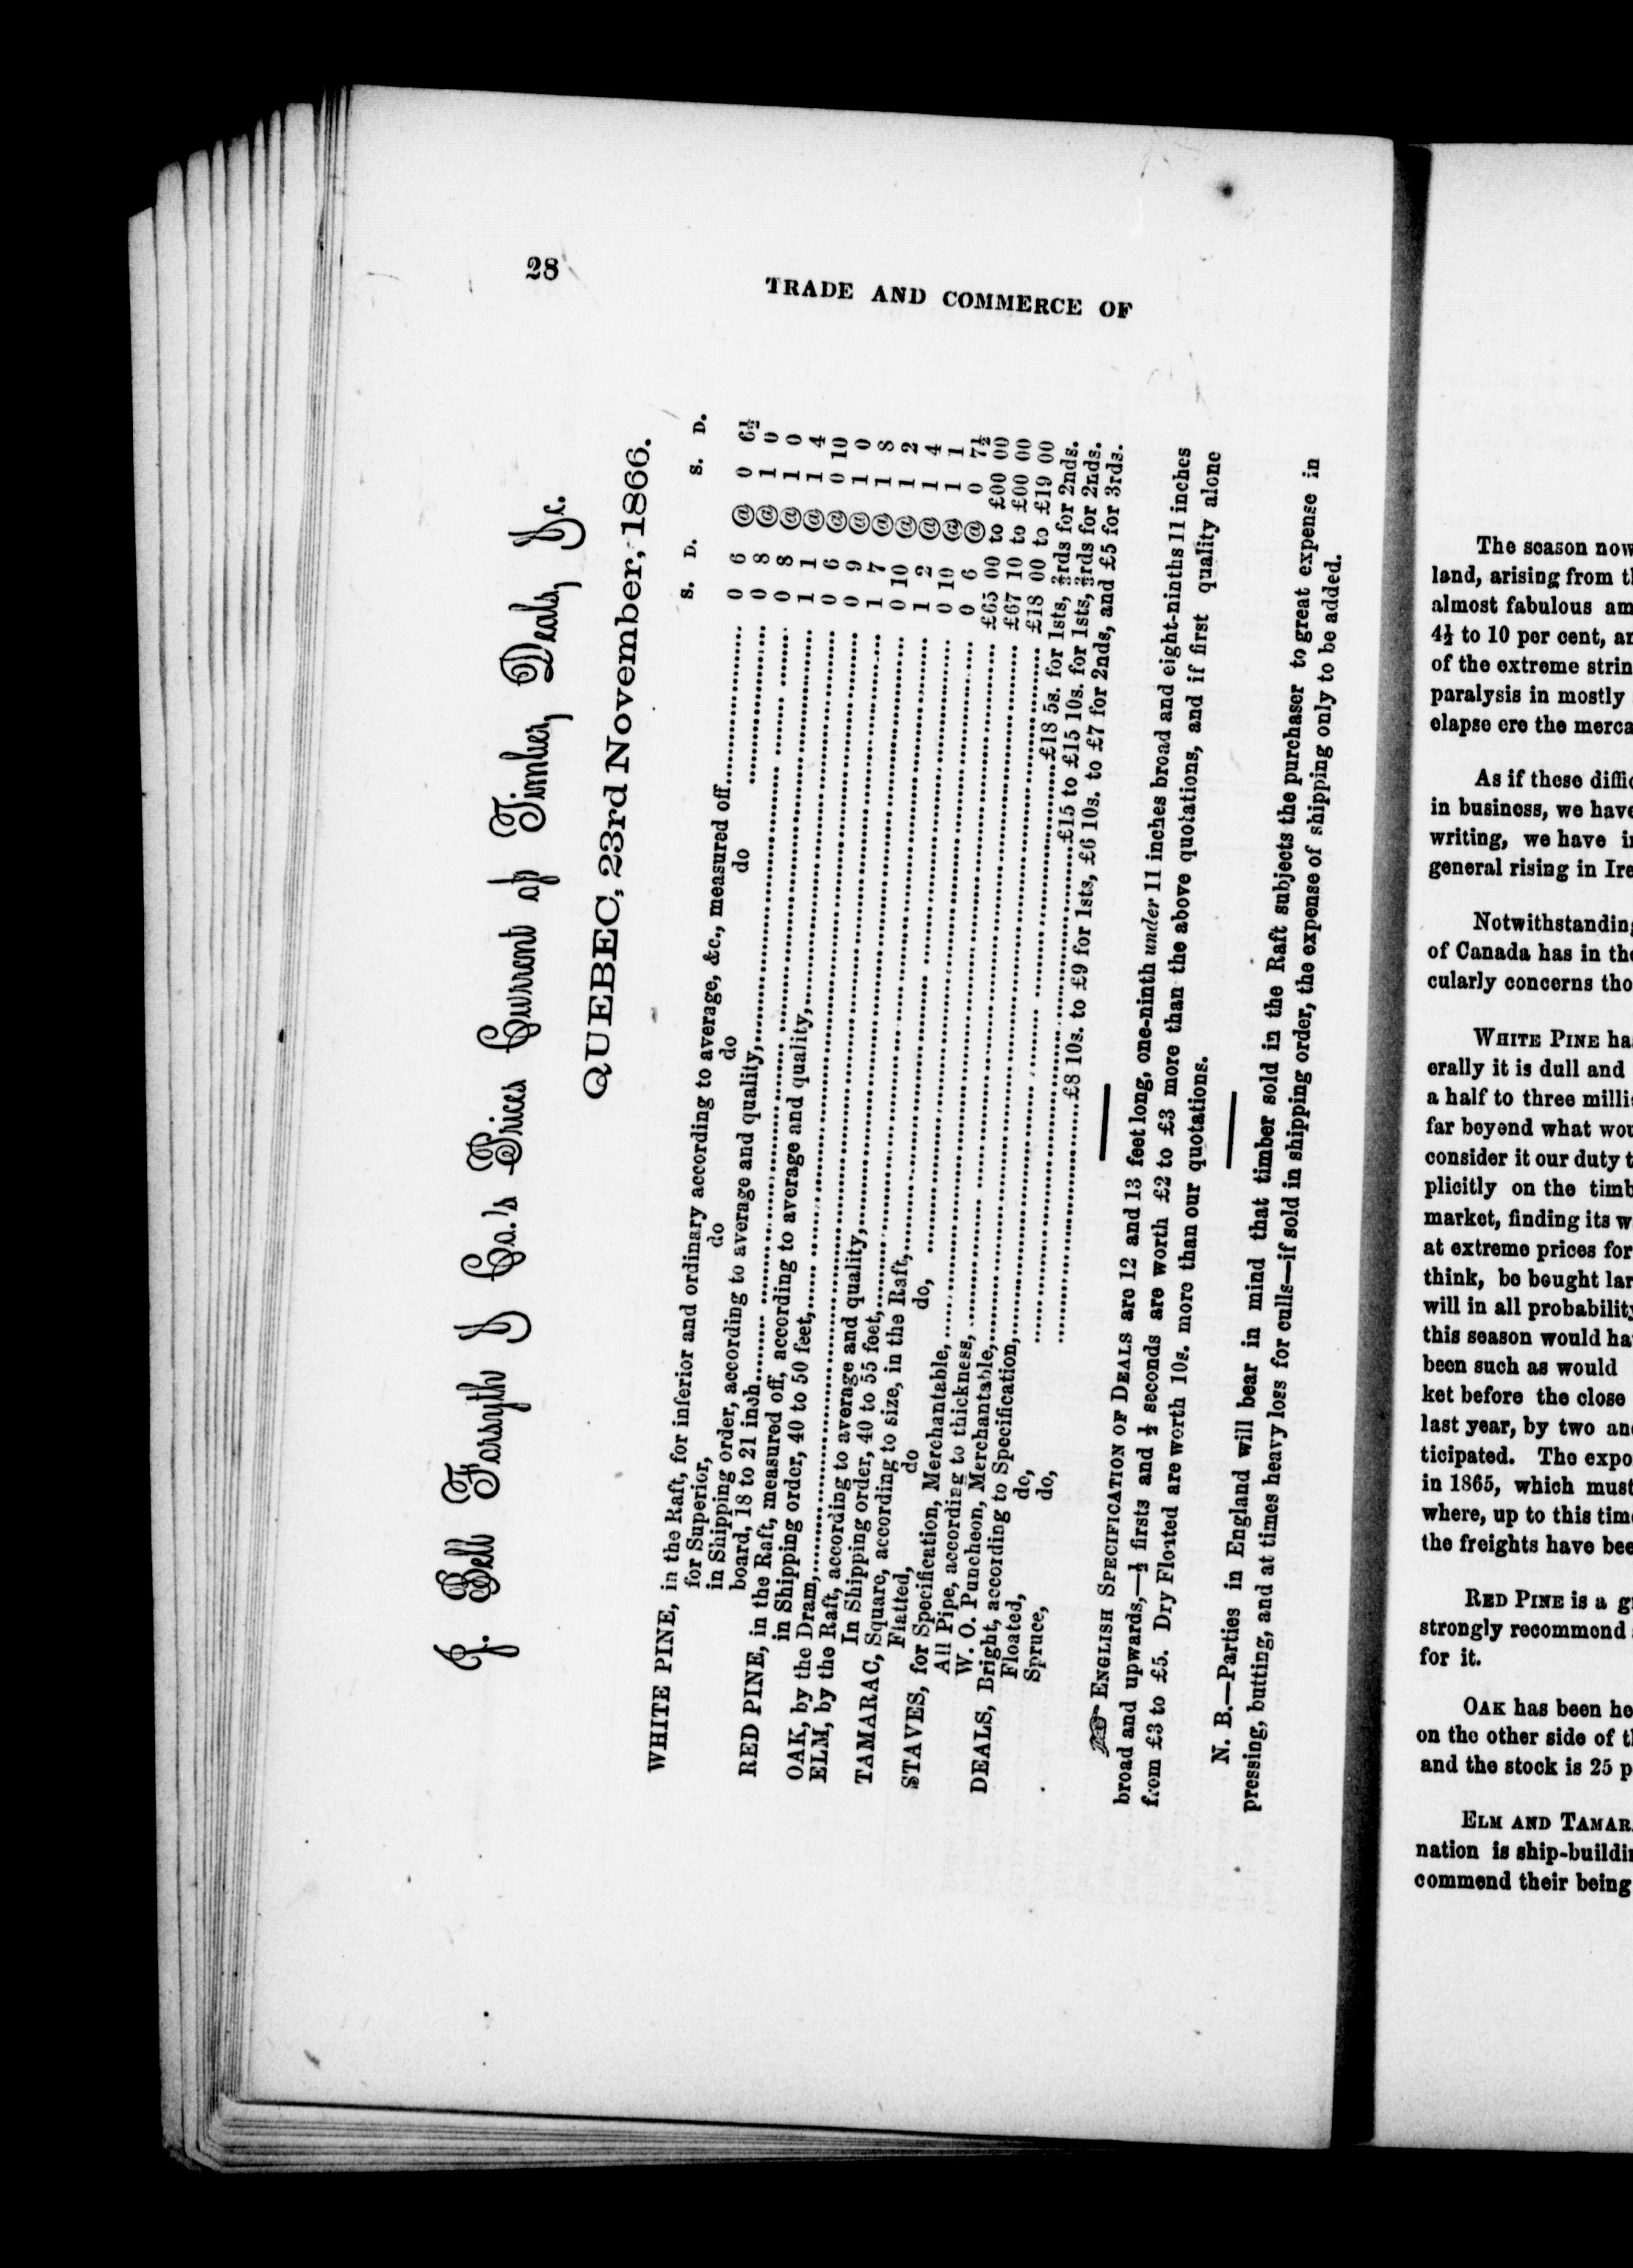 28
TRADE AND COMMERCE OF
J. Bell Forsyth & Co.'s Prices Current of Timber, Deals, &c.
QUEBEC, 23rd November, 1866.
S. D. S. D.
WHITE PINE, in the Raft, for inferior and ordinary according to average, &c., measured off.................. 0 6 @ 0 6½
for Superior, do do do .................. 0 8 @ 1 0
in Shipping order, according to average and quality,.................. 0 8 @ 1 0
board, 18 to 21 inch.................. 1 1 @ 1 4
RED PINE, in the Raft, measured off, according to average and quality,.................. 0 6 @ 0 10
in Shipping order, 40 to 50 feet,.................. 0 9 @ 1 0
OAK, by the Dram,.................. 1 7 @ 1 8
ELM, by the Raft, according to average and quality,.................. 0 10 @ 1 2
In Shipping order, 40 to 55 feet,.................. 1 2 @ 1 4
TAMARAC, Square, according to size, in the Raft,.................. 0 10 @ 1 1
Flatted, do do, .................. 0 6 @ 0 7½
STAVES, for Specification, Merchantable,.................. £65 00 to £00 00
All Pipe, according to thickness,.................. £67 10 to £00 00
W. O. Puncheon, Merchantable,.................. £18 00 to £19 00
DEALS, Bright, according to Specification,.................. £18 5s. for 1sts, ⅔rds for 2nds.
Floated, do, .................. £15 to £15 10s. for 1sts, ⅔rds for 2nds.
Spruce, do, .................. £8 10s. to £9 for 1sts, £6 10s. to £7 for 2nds, and £5 for 3rds.
ENGLISH SPECIFICATION OF DEALS are 12 and 13 feet long, one-ninth under 11 inches broad and eight-ninths 11 inches
broad and upwards,—½ firsts and ½ seconds are worth £2 to £3 more than the above quotations, and if first quality alone
from £3 to £5. Dry Floated are worth 10s. more than our quotations.
N. B.—Parties in England will bear in mind that timber sold in the Raft subjects the purchaser to great expense in
pressing, butting, and at times heavy loss for culls—if sold in shipping order, the expense of shipping only to be added.
The season now
land, arising from
almost fabulous
4½ to 10 per cent,
of the extreme
paralysis in mostly
elapse ere the
As if these
in business, we have
writing, we have
general rising in
Notwithstanding
of Canada has in
cularly concerns
WHITE PINE
erally it is dull and
a half to three
far beyond what
consider it our duty
plicitly on the
market, finding its
at extreme prices for
think, be bought
will in all probability
this season would
been such as would
ket before the close
last year, by two
ticipated. The
in 1865, which must
where, up to this
the freights have
RED PINE is a
strongly recommend
for it.
OAK has been
on the other side of
and the stock is 25
ELM AND
nation is
commend their being